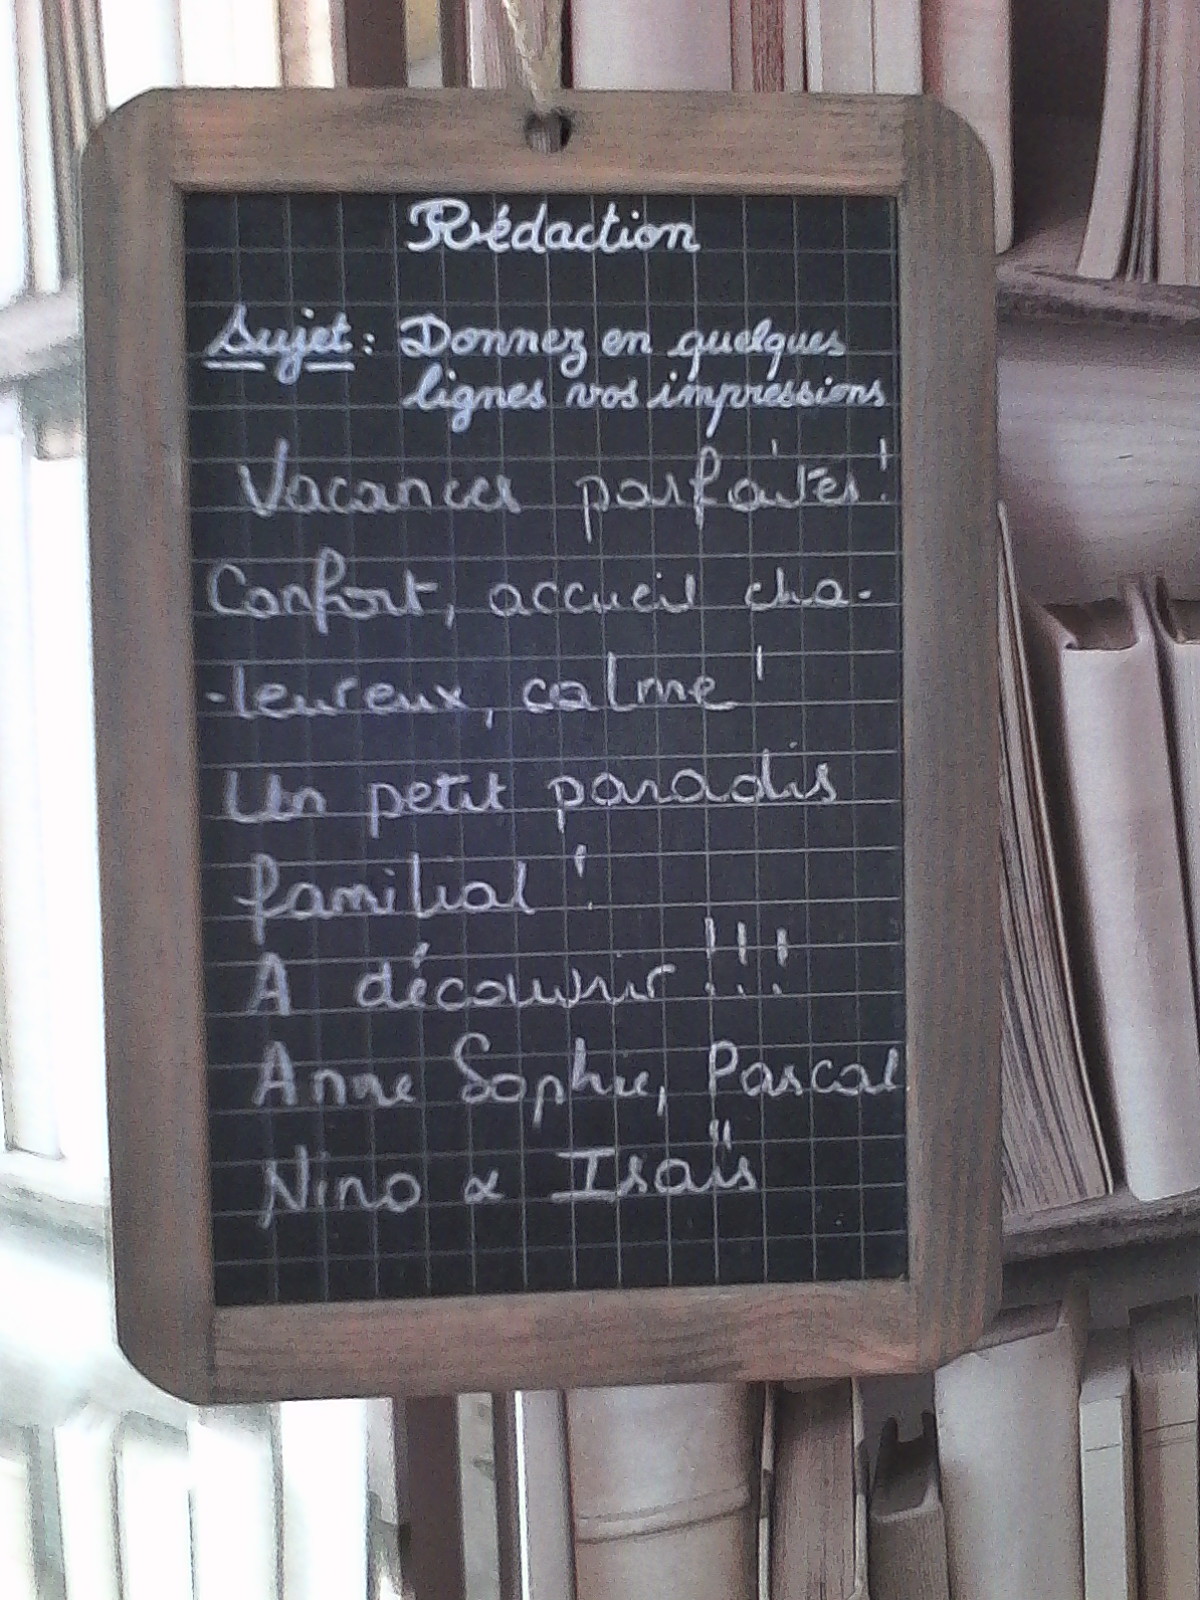 Rédaction
Sujet : Donnez en quelques
lignes vos impressions
Vacances parfaites !
Confort, accueil cha-
-leureux, calme !
Un petit paradis
familial !
A découvrir !!!
Anne Sophie, Pascal
Nino & Isaïs